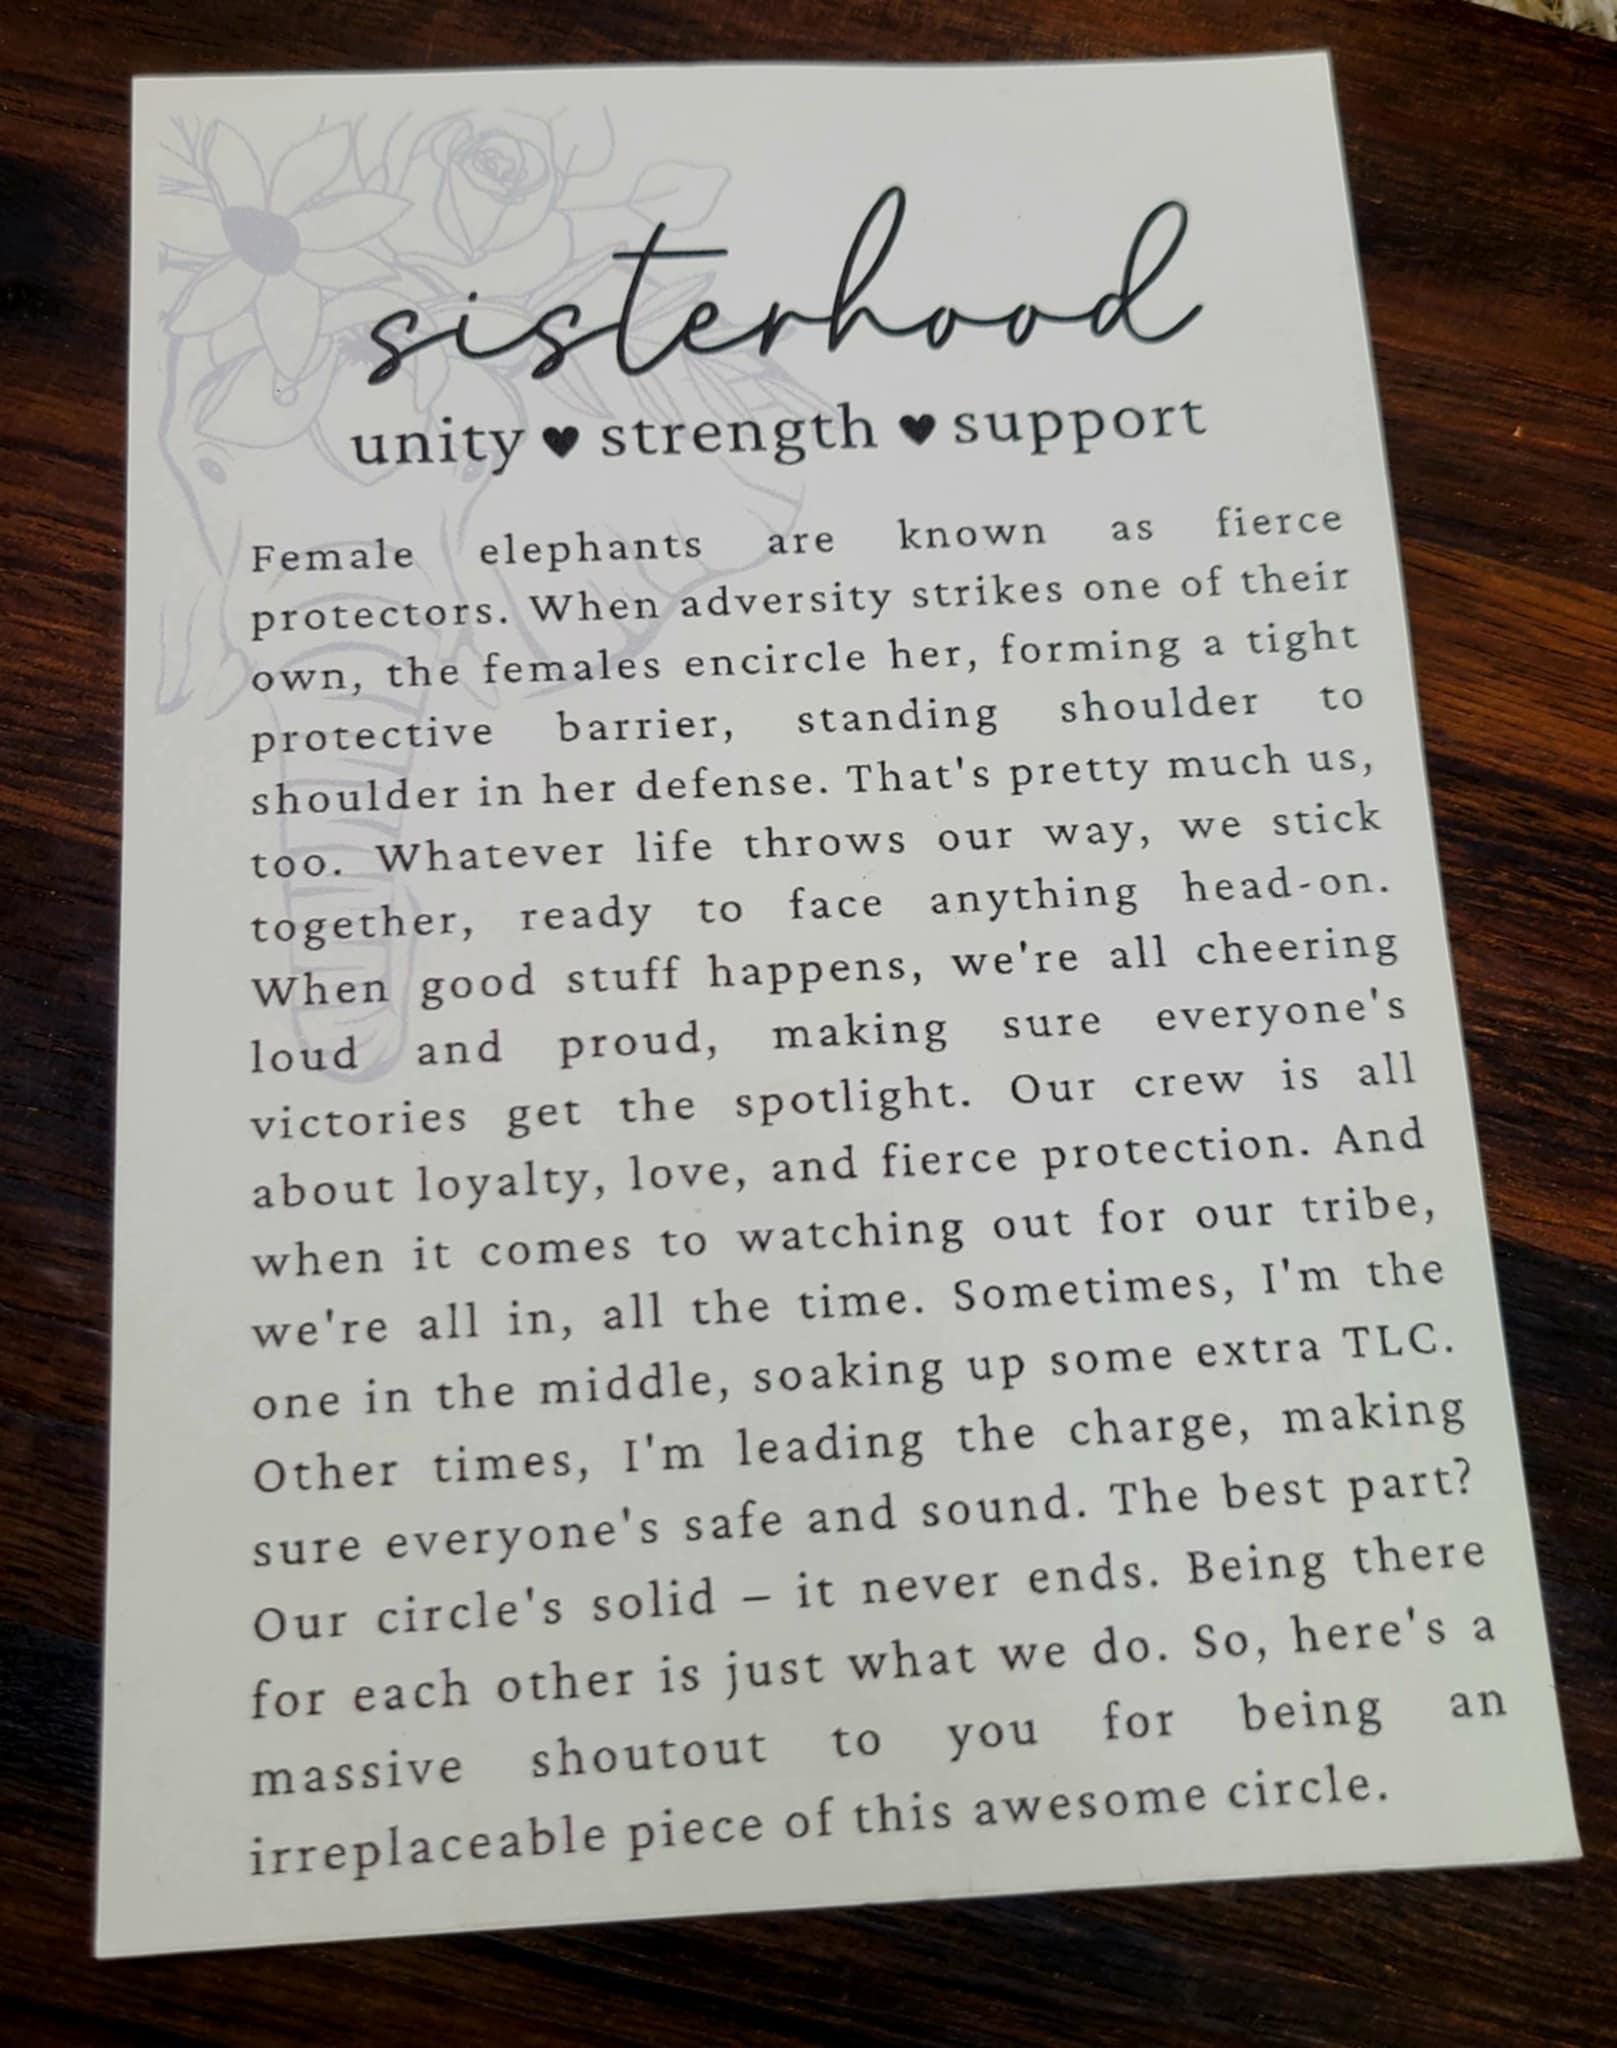 sisterhood
unity ♥ strength ♥ support
Female elephants are known as fierce
protectors. When adversity strikes one of their
own, the females encircle her, forming a tight
protective barrier, standing shoulder to
shoulder in her defense. That's pretty much us,
too. Whatever life throws our way, we stick
together, ready to face anything head-on.
When good stuff happens, we're all cheering
loud and proud, making sure everyone's
victories get the spotlight. Our crew is all
about loyalty, love, and fierce protection. And
when it comes to watching out for our tribe,
we're all in, all the time. Sometimes, I'm the
one in the middle, soaking up some extra TLC.
Other times, I'm leading the charge, making
sure everyone's safe and sound. The best part?
Our circle's solid – it never ends. Being there
for each other is just what we do. So, here's a
massive shoutout to you for being an
irreplaceable piece of this awesome circle.